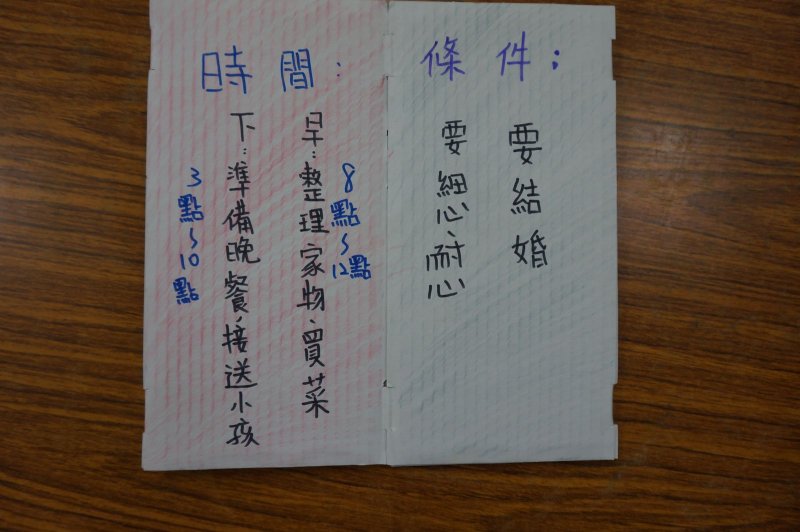 條件：
要結婚
要細心、耐心
時間：
早：整理家物、買菜
8點~12點
下：準備晚餐、接送小孩
3點~10點